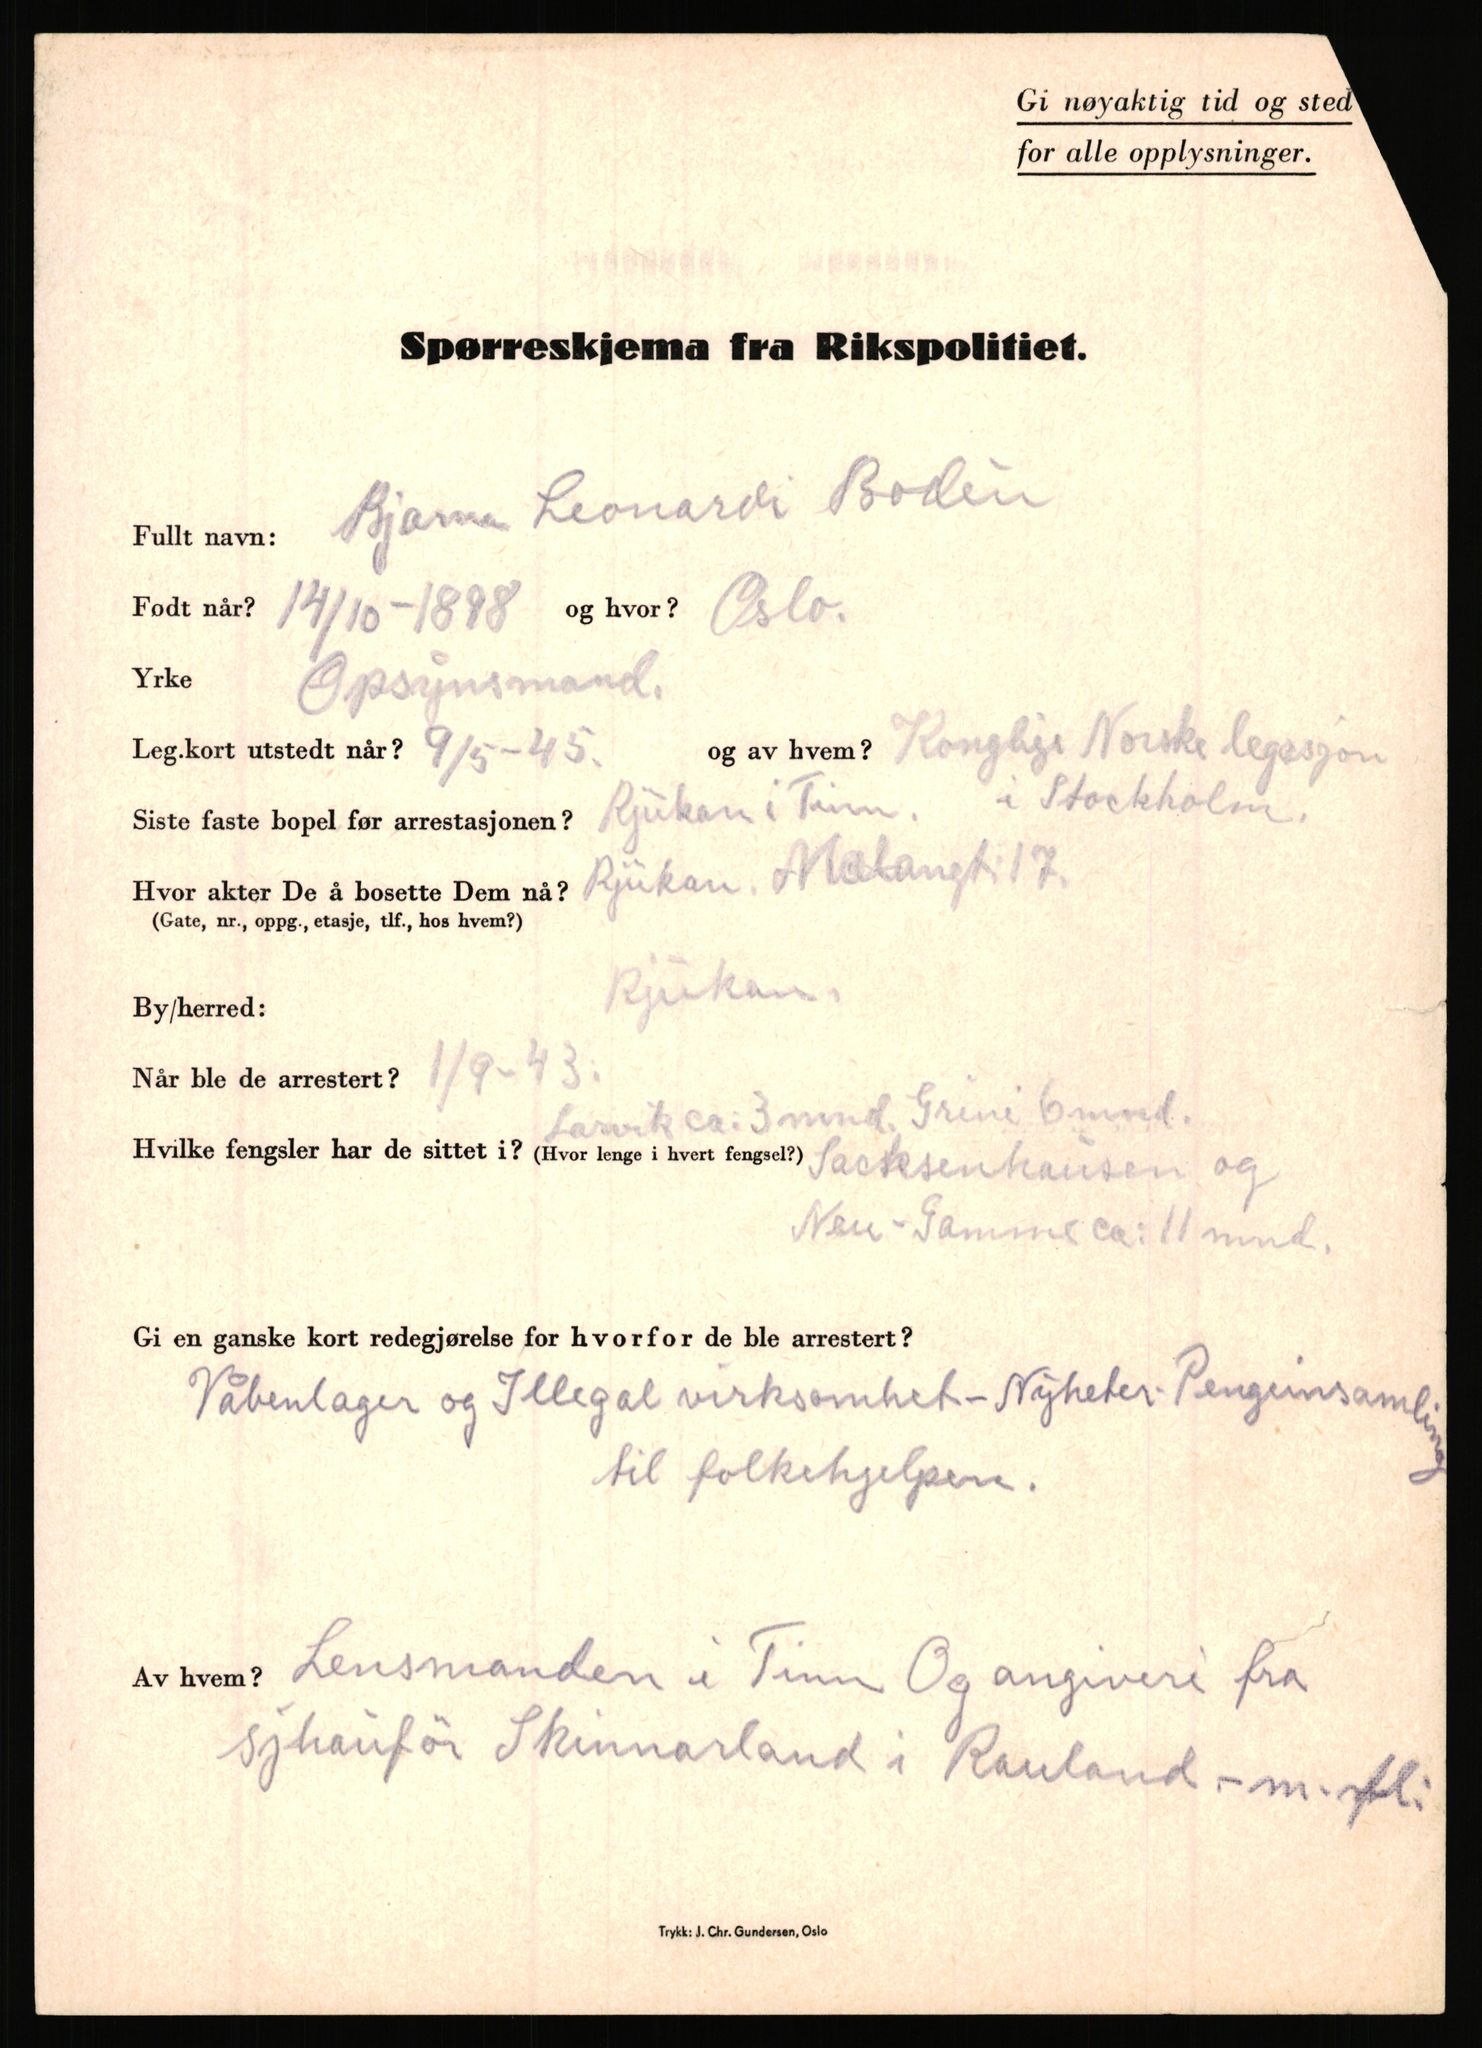 Gi nøyaktig tid og sted
for alle opplysninger.
Spørreskjema fra Rikspolitiet.
Fullt navn: Bjarne Leonardi Bodin
Født når? 14/10-1898 og hvor? Oslo.
Yrke Opsynsmand.
Leg.kort utstedt når? 9/5-45. og av hvem? Konglige Norske legasjon
i Stockholm.
Siste faste bopel før arrestasjonen? Rjukan i Tinn.
Hvor akter De å bosette Dem nå? Rjukan. 17.
(Gate, nr., oppg., etasje, tlf., hos hvem?)
By/herred: Rjukan.
Når ble de arrestert? 1/9-43.
Larvik ca: 3 mnd. Grini 6 mnd.
Hvilke fengsler har de sittet i? (Hvor lenge i hvert fengsel?) Sacksenhausen og
Neu-Gamme ca: 11 mnd.
Gi en ganske kort redegjørelse for hvorfor de ble arrestert?
Våbenlager og Illegal virksomhet - Nyheter - Pengeinsamling
til folkehjelpen.
Av hvem? Lensmanden i Tinn Og angiveri fra
Skinnarland i Rauland - m. fl:
Trykk: J. Chr. Gundersen, Oslo